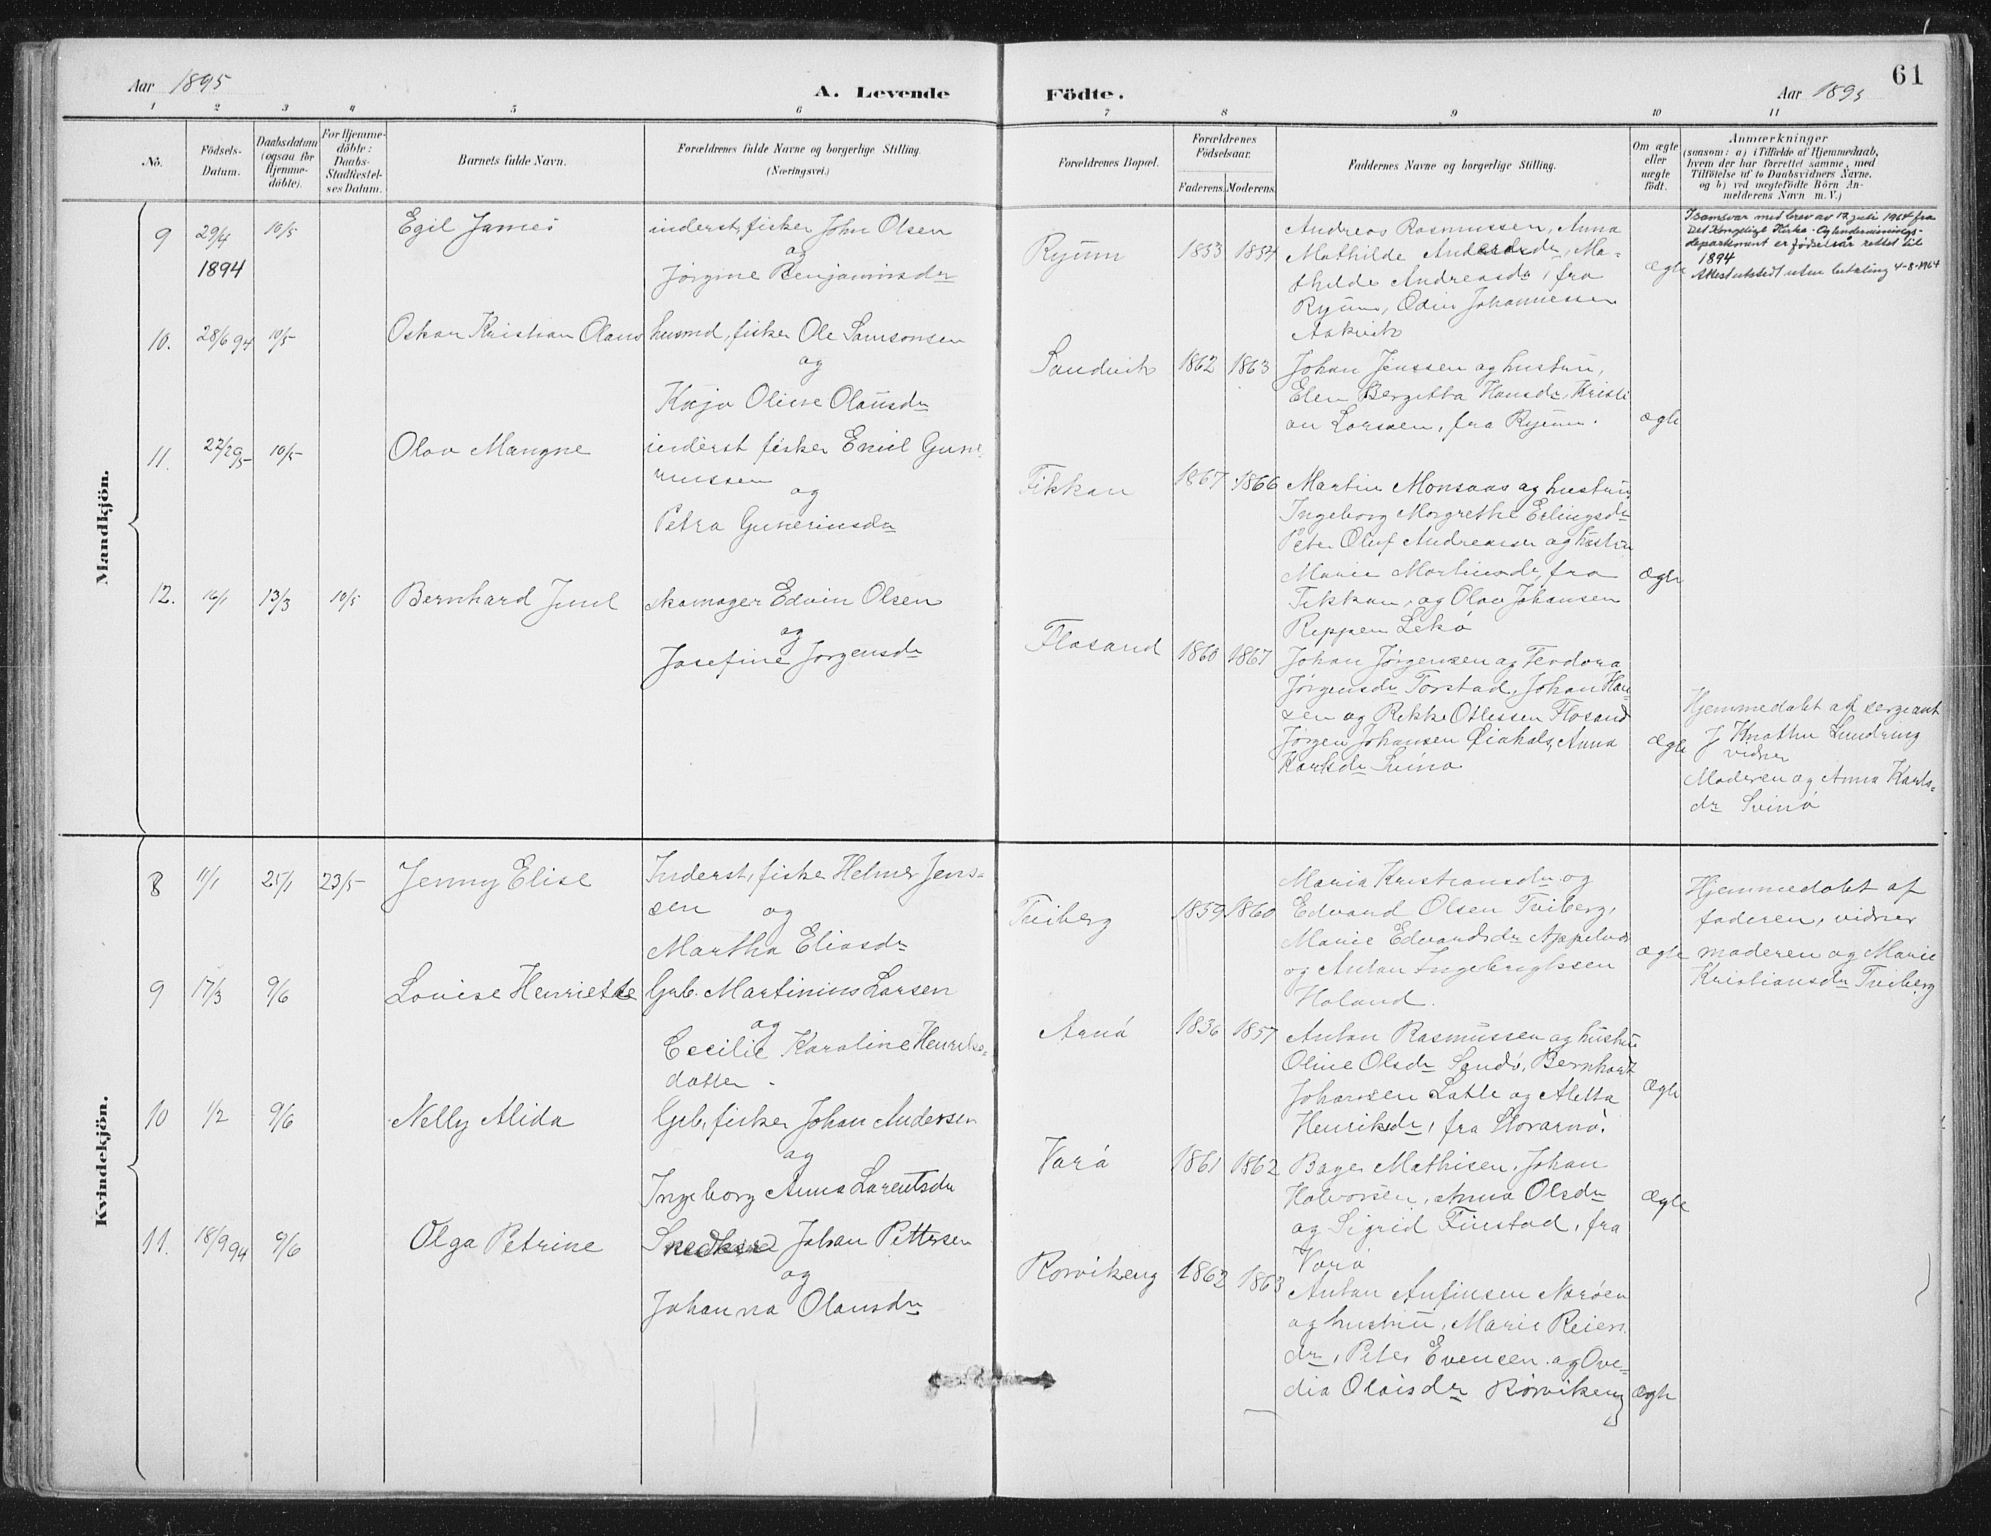 Aar 1895
A. Levende
Födte.
Aar 1895
61
1 2 3 4 5 6 7 8 9 10 11
No.
Födsels-
Datum.
Daabsdatum
(ogsaa for
Hjemme-
döbte).
For Hjemme-
döbte:
Daabs-
Stadfæstel-
ses Datum.
Barnets fulde Navn.
Forældrenes fulde Navne og borgerlige Stilling.
(Næringsvei.)
Forældrenes Bopæl.
Forældrenes
Födselsaar.
Faderens. Moderens.
Faddernes Navne og borgerlige Stilling.
Om ægte
eller
uægte
födt.
Anmærkninger
(saasom: a) i Tilfælde af Hjemmedaab,
hvem der har forrettet samme, med
Tilföielse af to Daabsvidners Navne.
og b) ved uægtefödte Börn An-
melderens Navn m. V.)
Mandkjön.
9 29/4 10/5 Egil James
1894
inderst, fisker John Olsen
og
Jörgine Benjaminsdr
Ryum 1853 1854
Andreas Rasmussen, Anna
Mathilde Andersdr, Ma-
thilde Andreasdr, fra
Ryum, Odin Johannessen
Aakvik
ægte
I samsvar med brev av 17. juli 1964 fra
Det Kongelige Kirke- Og Undervisnings-
departement er födselsår rettet til
1894
Attest utstedt uten betaling 4-8-1964
10. 28/6 94 10/5 Oskar Kristian Olaus
husmd, fisker Ole Samsonsen
og
Kaja Oline Olausdr
Sandvik 1862 1863
Johan Jenssen og hustru,
Elen Bergitta Hansdr, Kristi
an Larssen, fra Ryum.
ægte
11. 10/5 Olav Mangne
inderst fisker Emil Gune-
riussen
og
Petra Guneriusdr
Fikkan 1867 1866
Martin Monsaas og hustru
Ingeborg Margrethe Erlingsdr
Peter Oluf Andreassen og hustru
Marie Martinusdr, fra
Fikkan, og Olav Johansen
Reppen Lekö
ægte
12. 16/1 13/3 10/5 Bernhard Juul
skomager Edvin Olsen
og
Josefine Jörgensdr
Flosand 1860 1867
Johan Jörgensen og Teodora
Jörgensdr Torstad, Johan Han-
sen og Rikke Otlessen Flosand
Jörgen Johansen Anna
Karlsdr Svinö
ægte
Hjemmedöbt af sergeant
J Knathe Lundring
vidner
Moderen og Anna Karls-
dr Svinö
Kvindekjön.
8 11/1 25/1 23/5 Jenny Elise
Inderst, fisker Helmer Jens-
sen og
Martha Eliasdr
Treiberg 1859 1860
Maria Kristiansdr og
Edvard Olsen Treiberg,
Marie Edvardsdr
og Anton Ingebrigtssen
Holand.
ægte
Hjemmedöbt af
faderen, vidner
moderen og Marie
Kristiansdr Treiberg
9 17/3 9/6 Lovise Henriette
Grb. Martinius Larsen
og
Cecilie Karoline Henriks-
datter.
Arnö 1836 1857
Anton Rasmussen og hustru
Oline Olsdr Sandö, Bernhard
Johansen Latle og Aletta
Henriksdr, fra Storarnö.
ægte
10 1/2 9/6 Nelly Alida
Grb, fisker Johan Andersen
og
Ingeborg Anna Larentsdr
Varö 1861 1862
Mathisen, Johan
Halvorsen, Anna Olsdr
og Sigrid Finstad, fra
Varö
ægte
11. 18/9 94 9/6 Olga Petrine
Snedker Johan Pettersen
og
Johanna Olausdr
Rörvikeng 1862 1863
Anton Anfinsen Næröen
og hustru, Marie Reiers
dr, Peter Evensen og Ove-
dia Olaisdr Rörvikeng
ægte